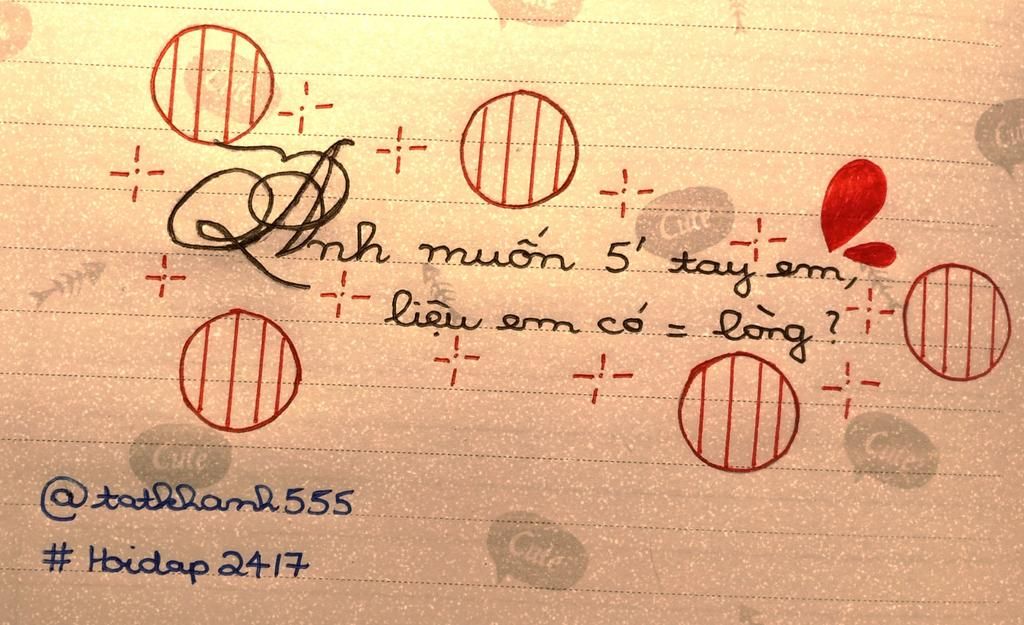 Anh muốn 5' tay em,
liệu em có = lòng?
@totkhanh555
#Hoidap2417
Cute
Cute
Cute
Cute